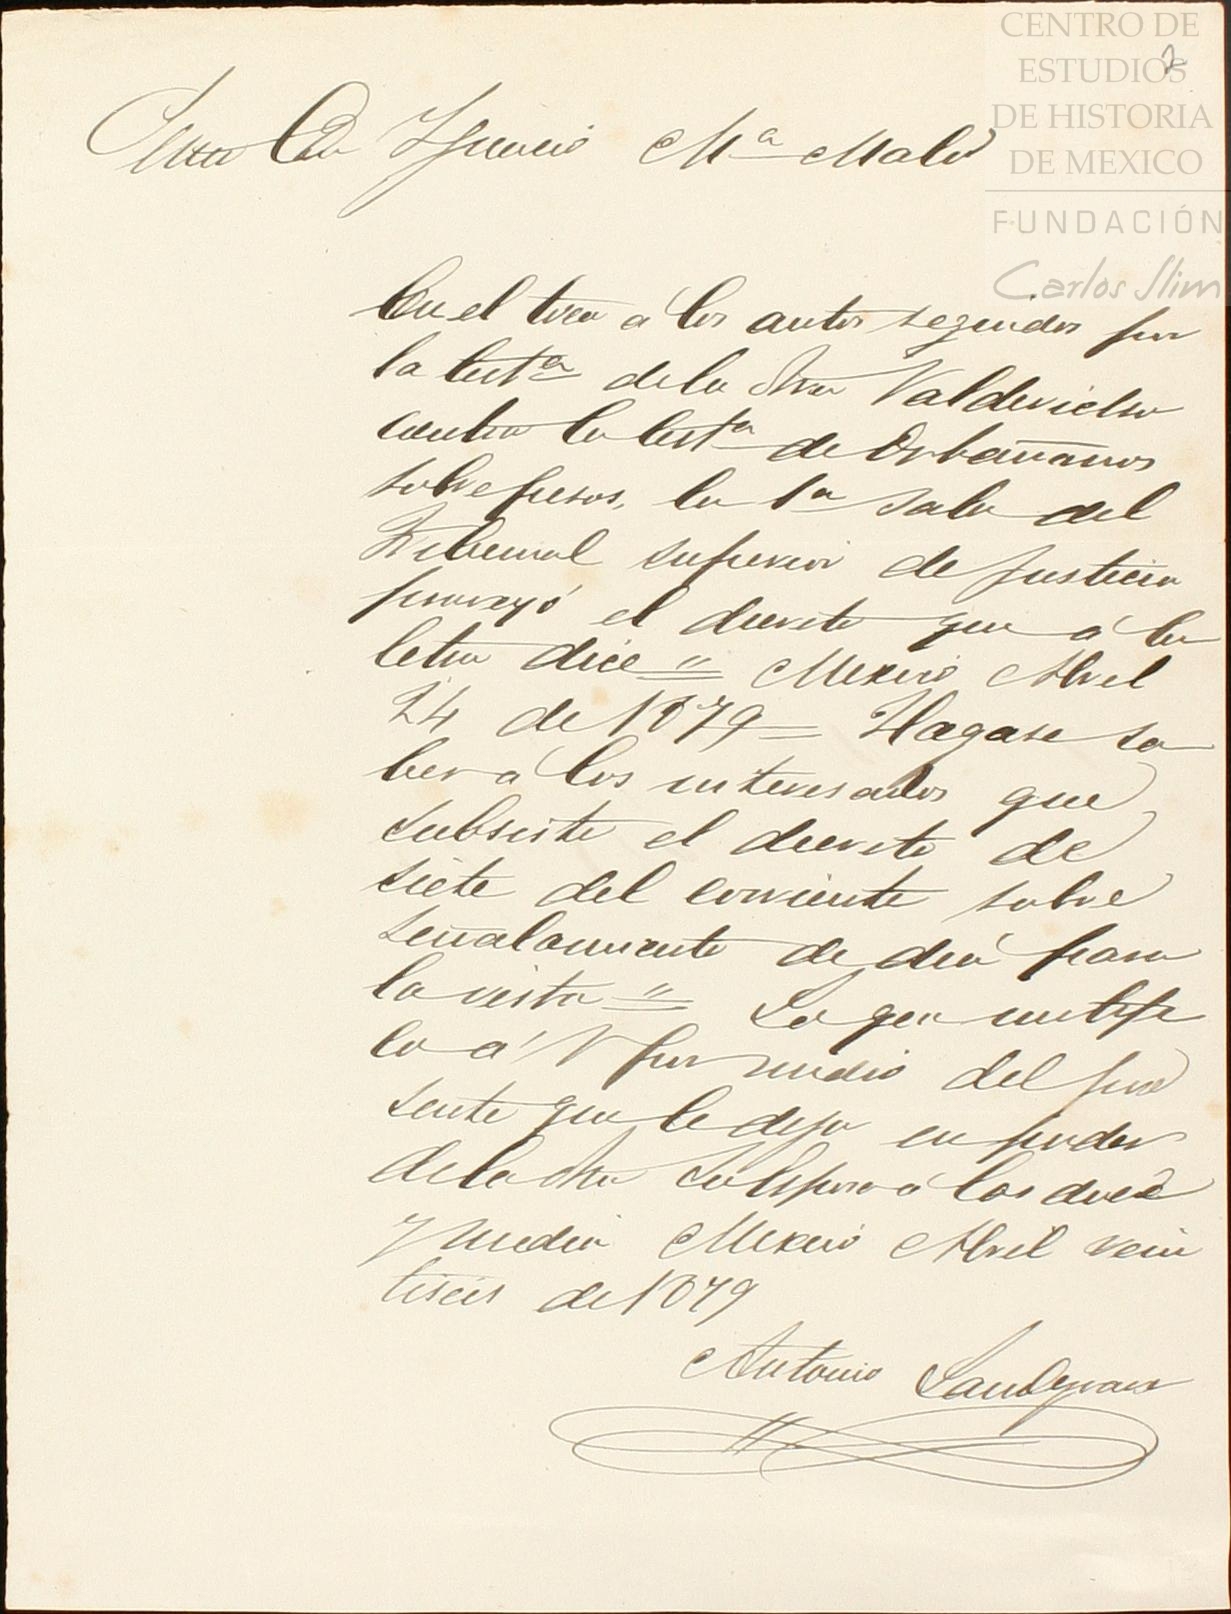 CENTRO DE
ESTUDIOS
DE HISTORIA
DE MEXICO
FUNDACIÓN
Carlos Slim
2
Ignacio Mª Malo
En el toca á los autos seguidos por
la testª de la Sra Valdivielso
contra la testª de Orbañanos
sobre pesos, la 1ª Sala del
Tribunal superior de Justicia
proveyó el decreto que á la
letra dice = " Mexico Abril
24 de 1879 = Hagase sa
ber a los interesados que
subsiste el decreto de
siete del corriente sobre
señalamiento de dia para
la vista = " Lo que notifi
co á V por medio del pre
sente que le dejo en poder
de la Sra á las doce
y media Mexico Abril vein
tiseis de 1879
Antonio